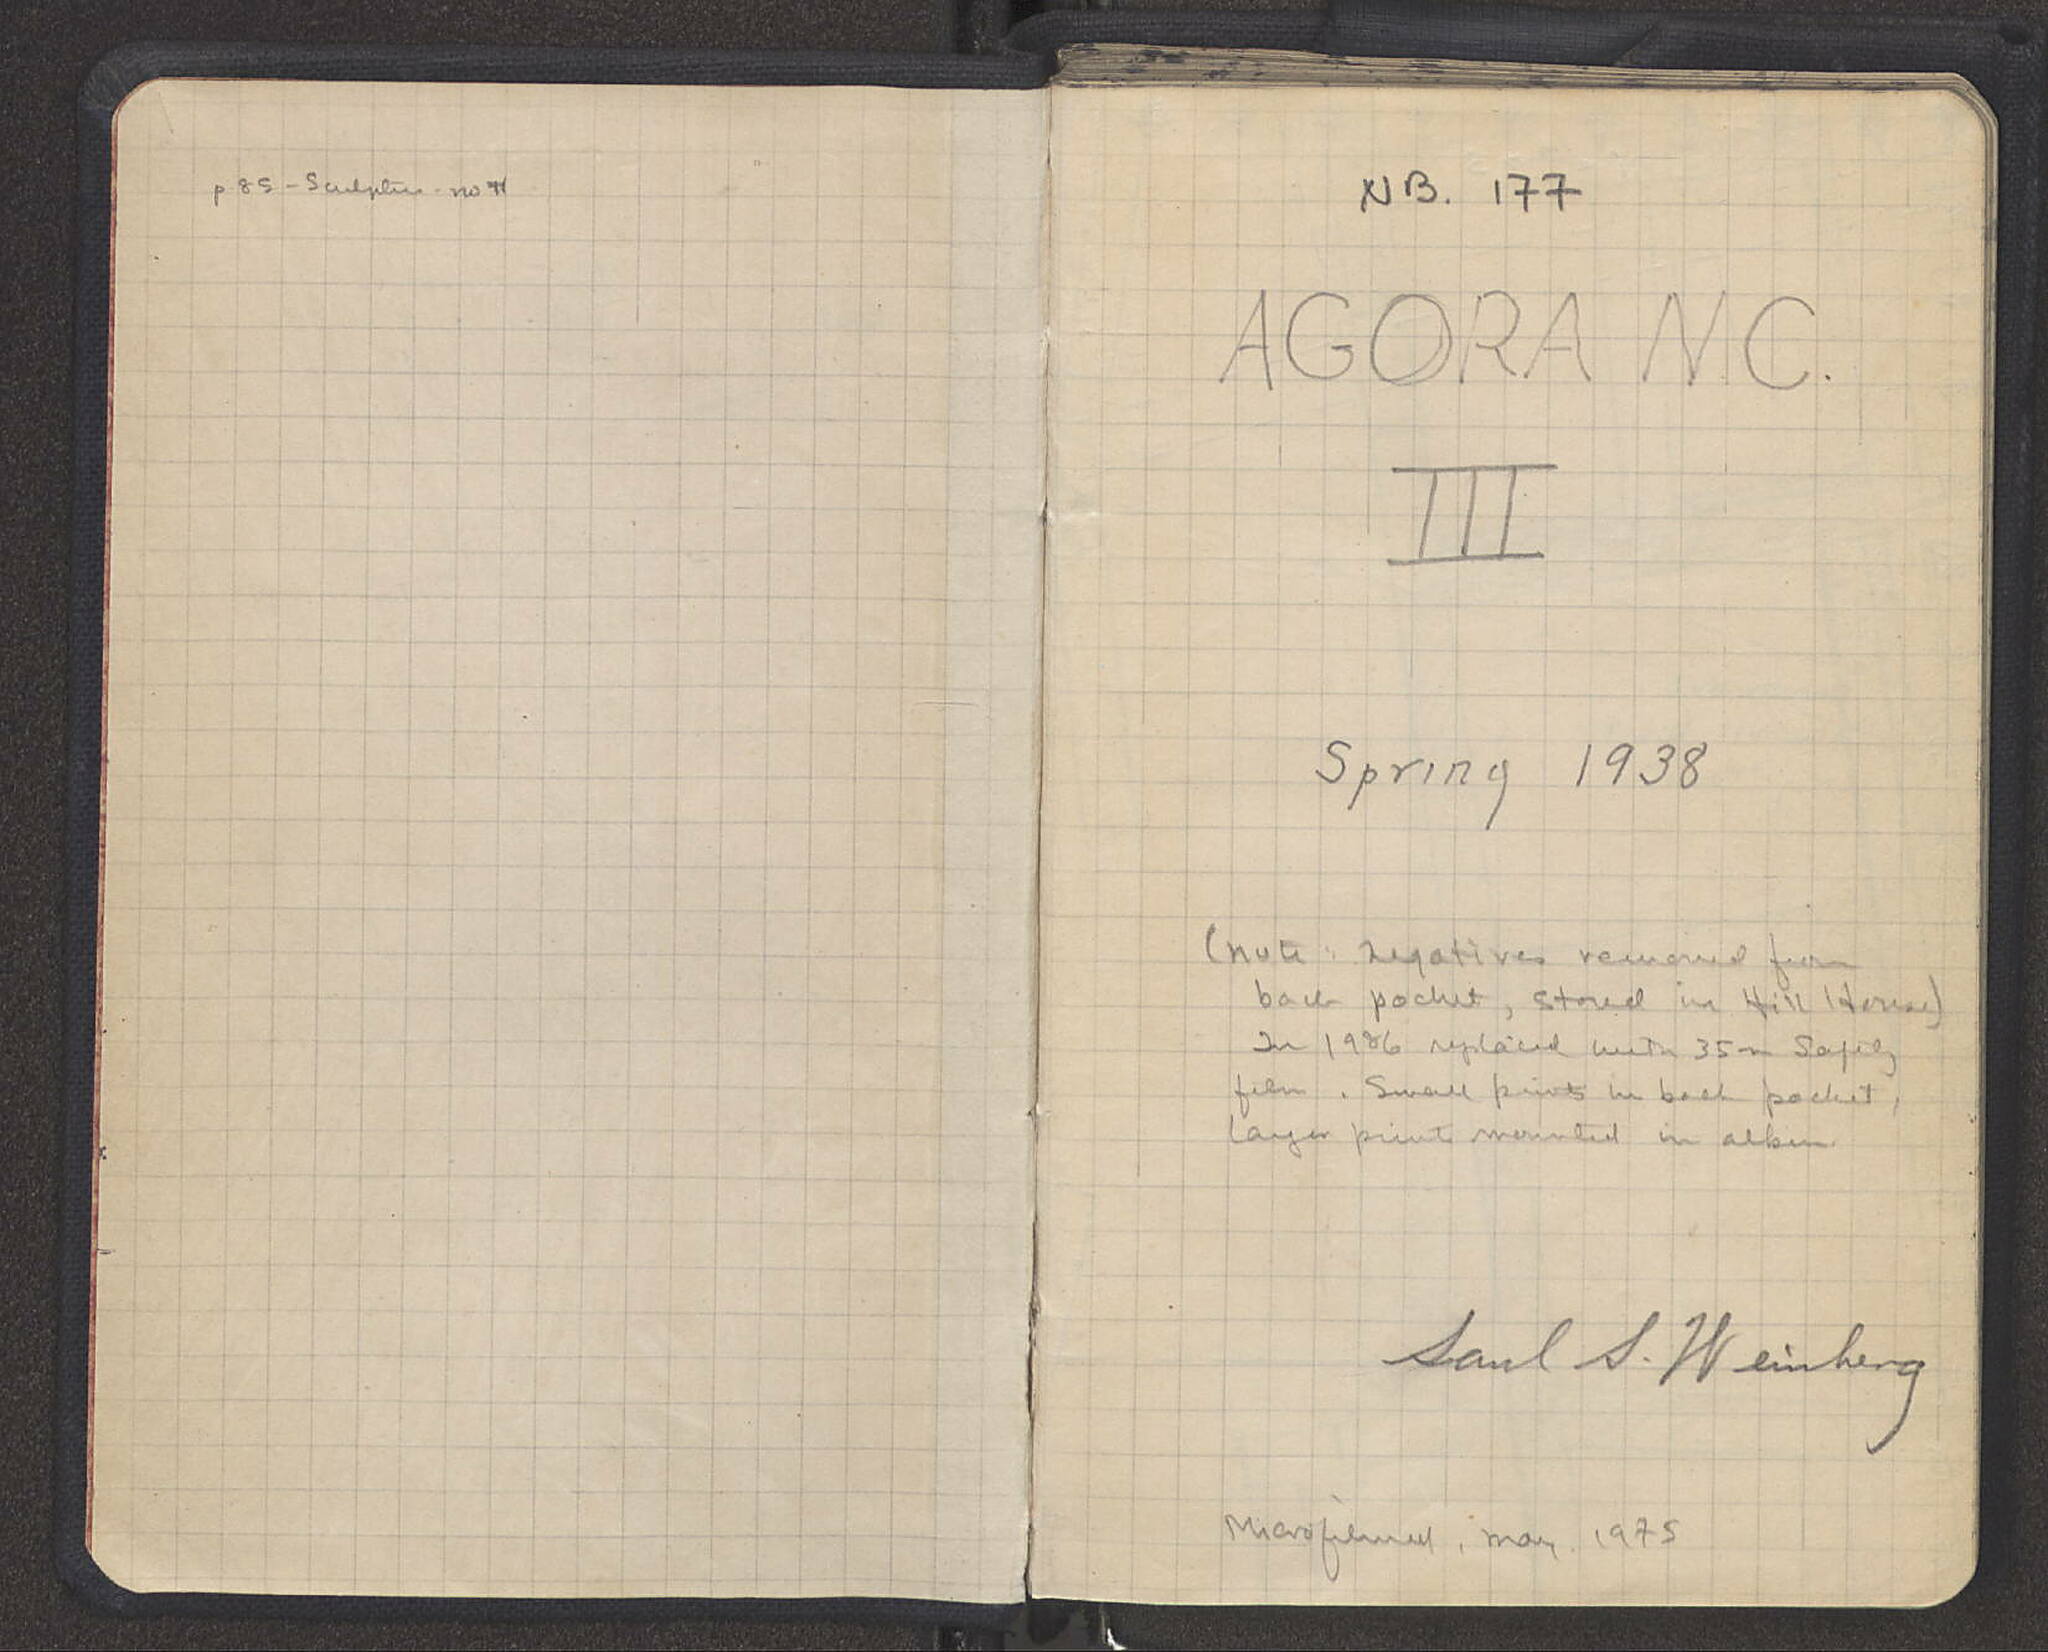 p 85 - Sculpture - no #
NB. 177
AGORA N.C.
III
Spring 1938
(Note: negatives removed from
back pocket, stored in Hill House)
In 1986 replaced with 35m Safety
film. Small prints in back pocket,
larger prints mounted in album
Saul S. Weinberg
Microfilmed, May 1975